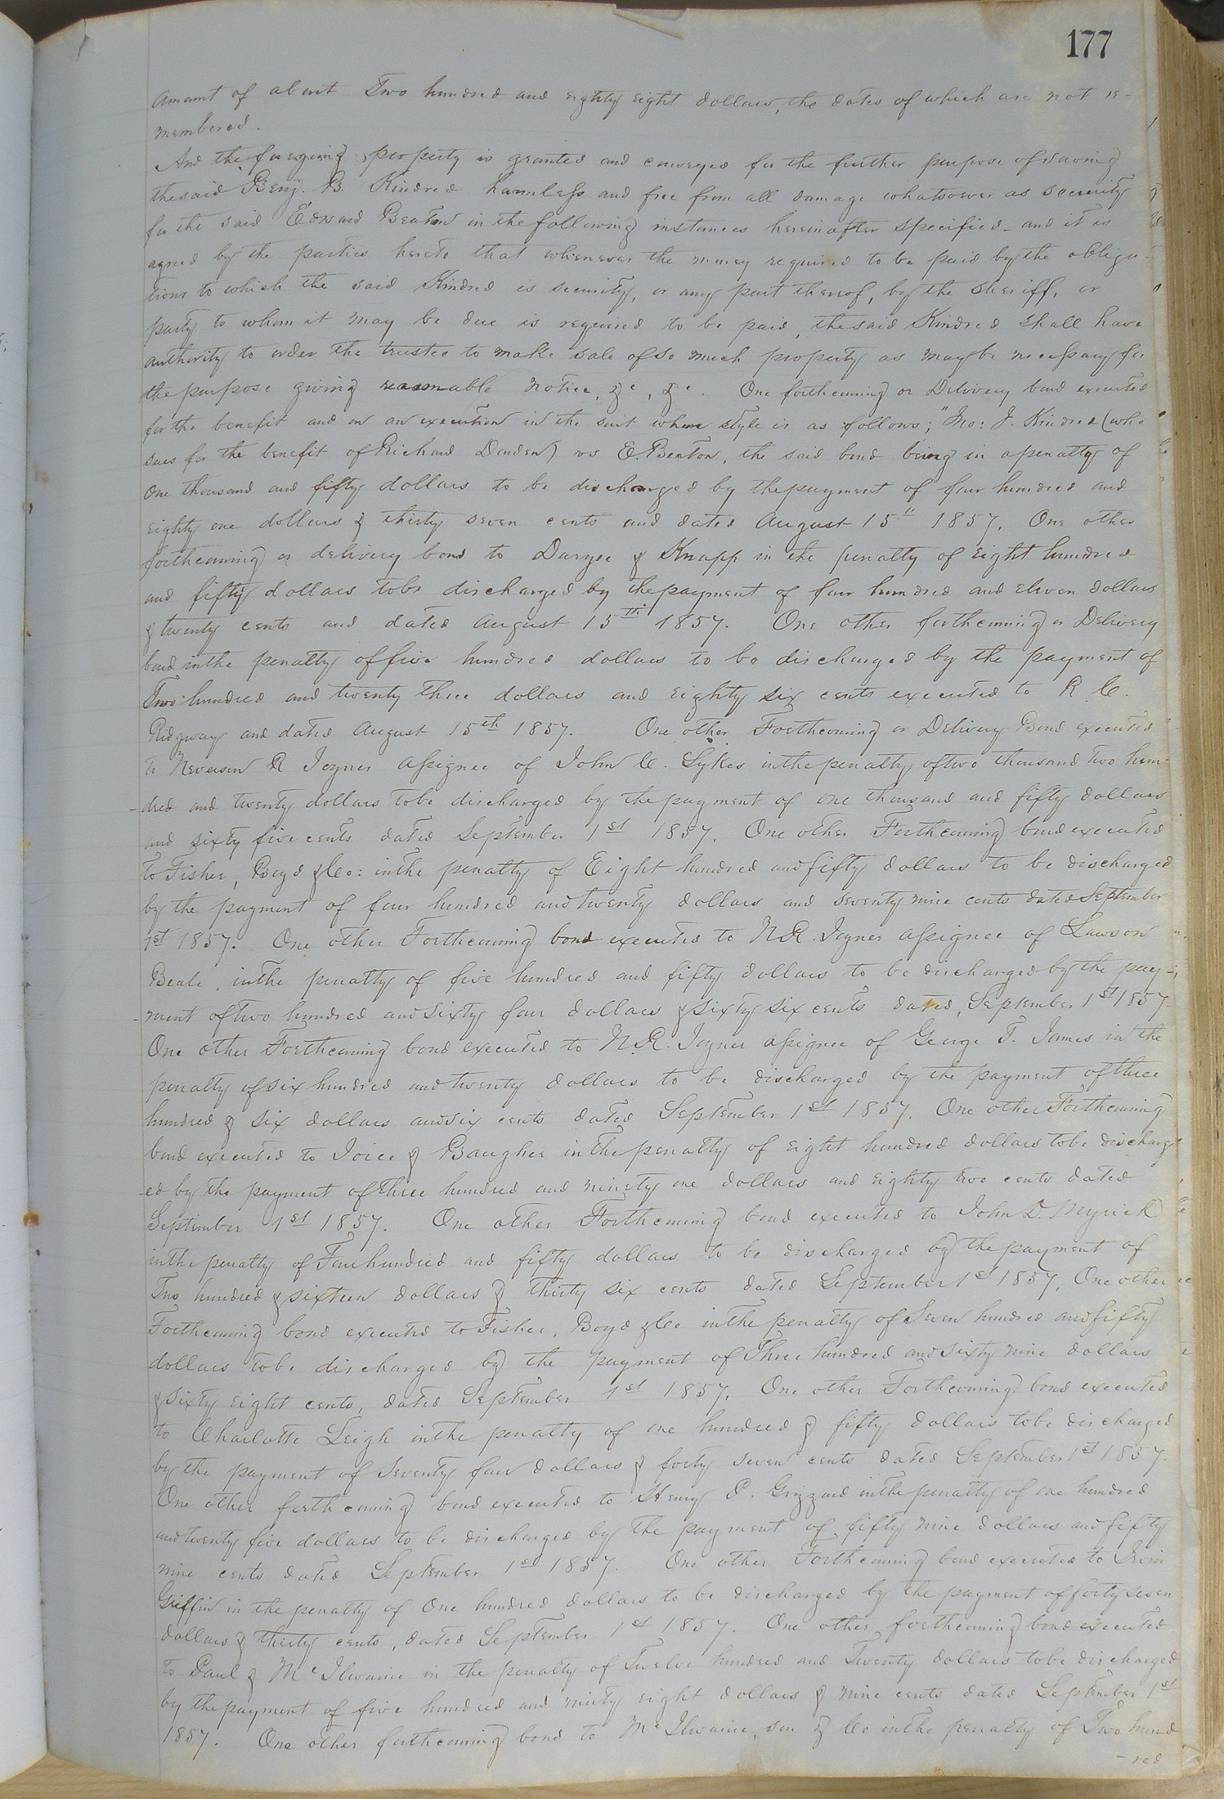 177
amount of about Two hundred and eighty eight dollars, the dates of which are not re-
membered.
And the foregoing property is granted and conveyed for the further purpose of saving
the said Benj. B. Kindred harmless and free from all damage whatsoever as security
for the said Edward Beaton in the following instances hereinafter specified - and it is
agreed by the parties hereto that whenever the money required to be paid by the obliga-
tions to which the said Kindred is security, or any part thereof, by the Sheriff, or
party to whom it may be due is required to be paid, the said Kindred shall have
authority to order the trustee to make sale of so much property as may be necessary for
the purpose giving reasonable notice, &c, &c. One forthcoming or Delivery bond executed
for the benefit and on an execution in the suit whose style is as follows; "Jno: J. Kindred (who
sues for the benefit of Richard Darden) vs E. Beaton, the said bond being in a penalty of
One thousand and fifty dollars to be discharged by the payment of four hundred and
eighty one dollars & thirty seven cents and dated August 15th 1857. One other
forthcoming or delivery bond to Duryee & Knapp in the penalty of eight hundred
and fifty dollars to be discharged by the payment of four hundred and eleven dollars
& twenty cents and dated August 15th 1857. One other forthcoming or Delivery
bond in the penalty of five hundred dollars to be discharged by the payment of
Two hundred and twenty three dollars and eighty six cents executed to R C.
Ridgway and dated August 15th 1857. One other Forthcoming or Delivery Bond executed
to Neverson R Joyner assignee of John C. Sykes in the penalty of two thousand two hun-
dred and twenty dollars to be discharged by the payment of one thousand and fifty dollars
and sixty five cents dated September 1st 1857. One other Forthcoming bond executed
to Fisher, Boyd & Co: in the penalty of Eight hundred and fifty dollars to be discharged
by the payment of four hundred and twenty dollars and seventy nine cents dated September
1st 1857. One other Forthcoming bond executed to N.R. Joyner assignee of Lawson
Beale, in the penalty of five hundred and fifty dollars to be discharged by the pay-
ment of two hundred and sixty four dollars & sixty six cents dated, September 1st 1857
One other Forthcoming bond executed to N.R. Joyner assignee of George T. James in the
penalty of six hundred and twenty dollars to be discharged by the payment of three
hundred & six dollars and six cents dated September 1st 1857. One other Forthcoming
bond executed to Joice & Baugher in the penalty of eight hundred dollars to be discharg-
ed by the payment of three hundred and ninety one dollars and eighty two cents dated
September 1st 1857. One other Forthcoming bond executed to John D. Myrick
in the penalty of Four hundred and fifty dollars to be discharged by the payment of
Two hundred & sixteen dollars & thirty six cents dated September 1st 1857. One other
Forthcoming bond executed to Fisher, Boyd & Co in the penalty of Seven hundred and fifty
dollars to be discharged by the payment of Three hundred and sixty nine dollars
& sixty eight cents, dated September 1st 1857. One other Forthcoming bond executed
to Charlotte Leigh in the penalty of one hundred & fifty dollars to be discharged
by the payment of seventy four dollars & forty seven cents dated September 1st 1857.
One other forthcoming bond executed to Henry P. Grizzard in the penalty of one hundred
and twenty five dollars to be discharged by the payment of fifty nine dollars and fifty
nine cents dated September 1st 1857. One other Forthcoming bond executed to
Griffin in the penalty of One hundred dollars to be discharged by the payment of forty seven
dollars & thirty cents, dated September 1st 1857. One other forthcoming bond executed
to Paul & McIlwaine in the penalty of Twelve hundred and Twenty dollars to be discharged
by the payment of five hundred and ninty eight dollars & nine cents dated September 1st
1857. One other forthcoming bond to McIlwaine, son & Co in the penalty of Two hund
-red